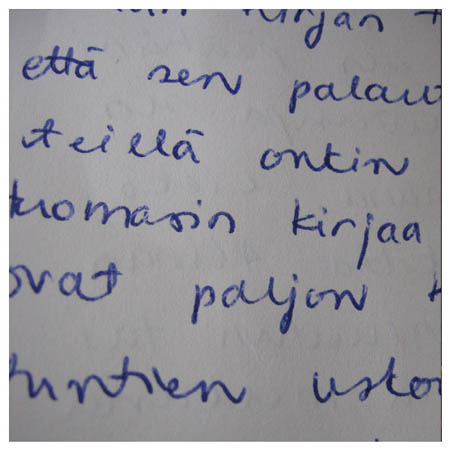 kirjan
että sen palau
teillä ontin
tuomasin kirjaa
ovat paljon
tuntien usko